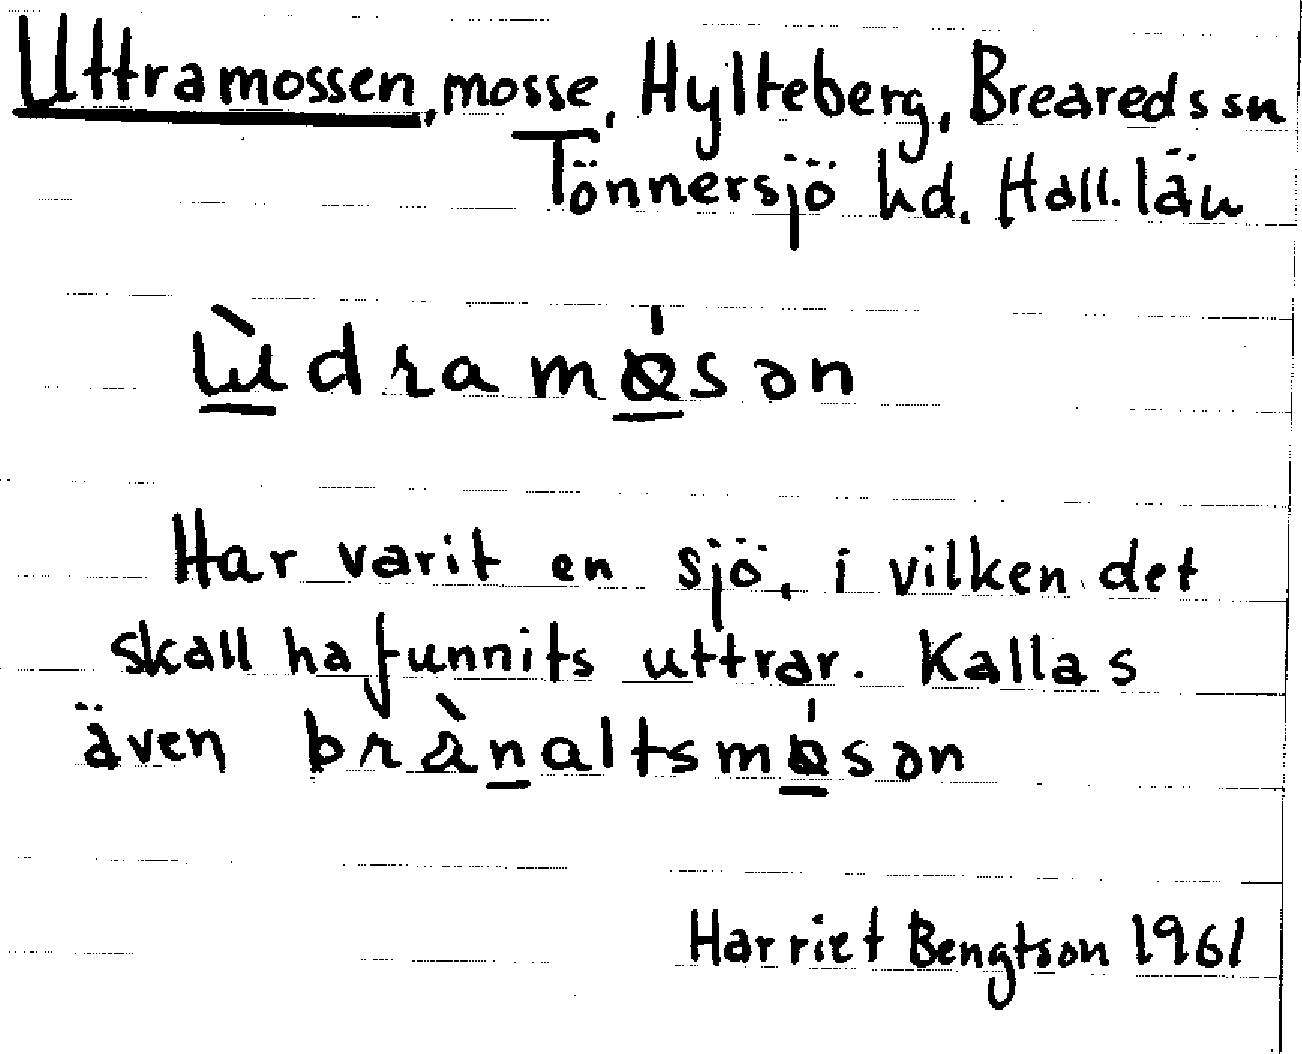 Uttramossen, mosse, Hylteberg, Breareds sn
Tönnersjö hd. Hall. län
ɯ̀dramǿsən
Har varit en sjö, i vilken det
skall ha funnits uttrar. Kallas
även brànaltsmǿsən
Harriet Bengtson 1961